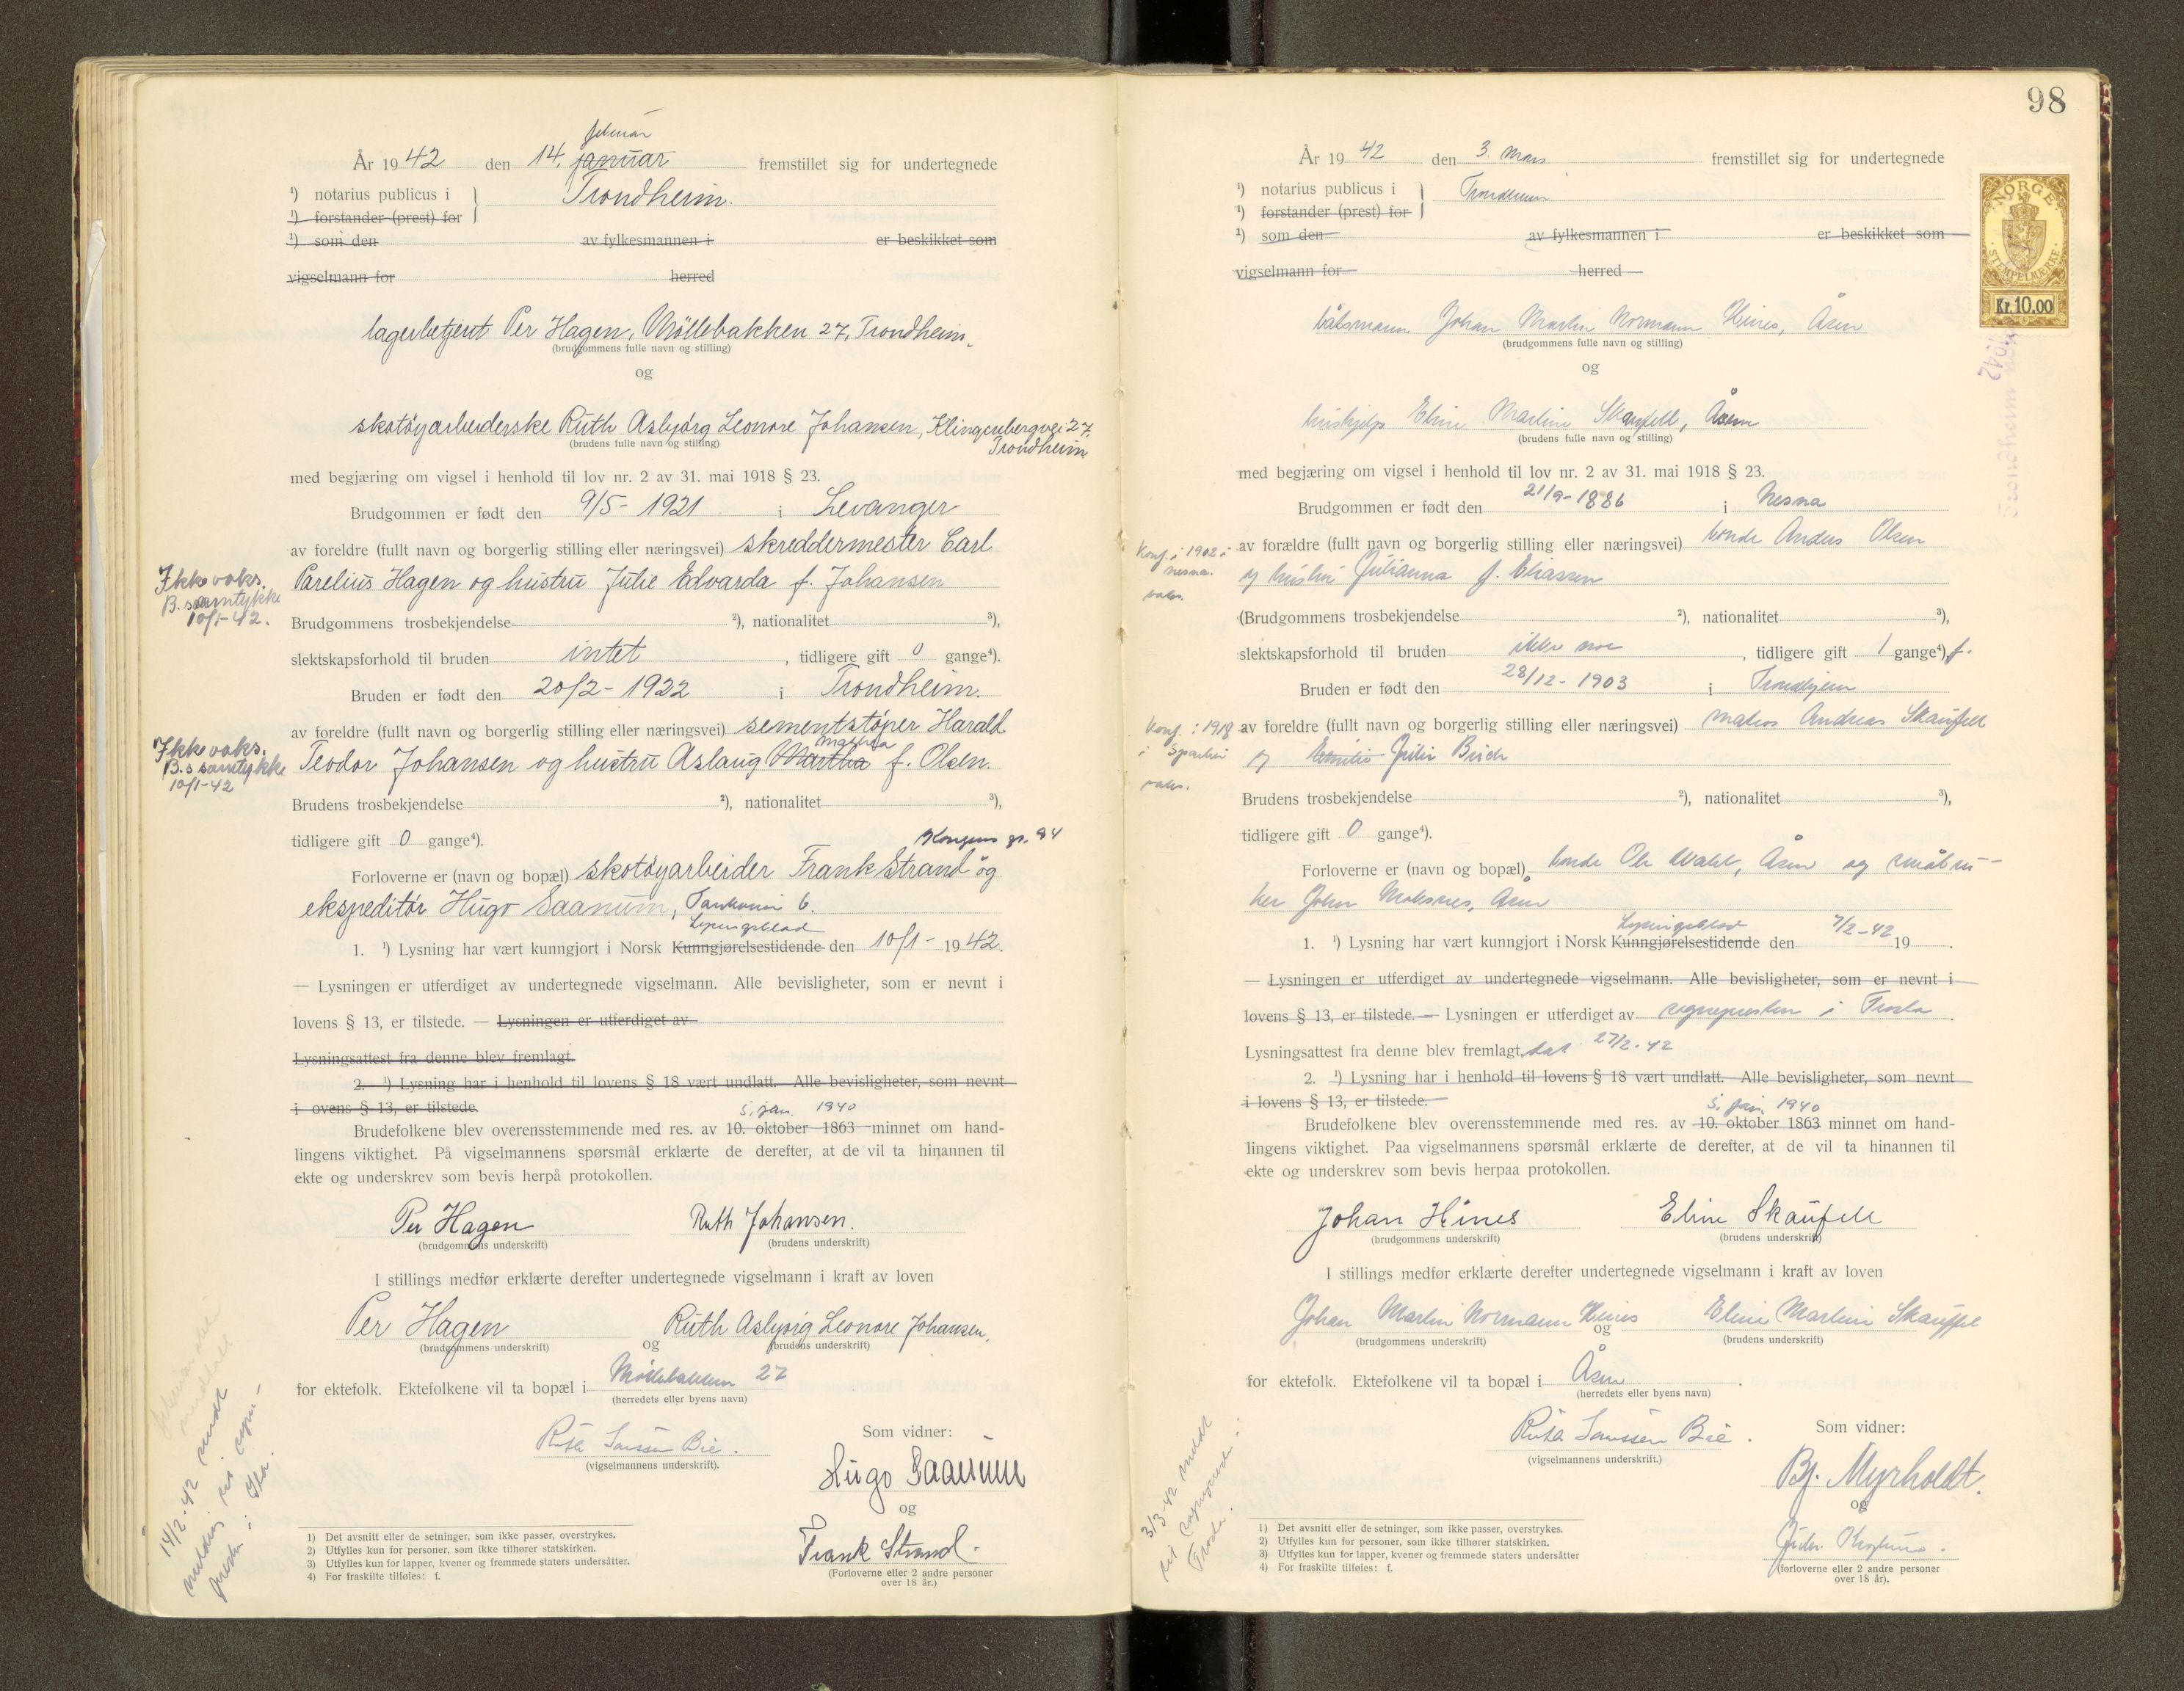 februar
År 1942 den 14. januar fremstillet sig for undertegnede
¹) notarius publicus i } Trondheim.
¹) forstander (prest) for
¹) som den av fylkesmannen i er beskikket som
vigselmann for herred
lagerbetjent Per Hagen, Möllebakken 27, Trondheim.
(brudgommens fulle navn og stilling)
og
skotøyarbeiderske Ruth Asbjørg Leonore Johansen, Klingenbergvei 27,
Trondheim
(brudens fulle navn og stilling)
med begjæring om vigsel i henhold til lov nr. 2 av 31. mai 1918 § 23.
Brudgommen er født den 9/5- 1921 i Levanger
av foreldre (fullt navn og borgerlig stilling eller næringsvei) skreddermester Carl
Parelius Hagen og hustru Julie Edvarda f. Johansen
Ikke vaks.
B. samtykke
10/1-42.
Brudgommens trosbekjendelse ²), nationalitet ³),
slektskapsforhold til bruden intet , tidligere gift 0 gange⁴).
Bruden er født den 20/2- 1922 i Trondheim.
av foreldre (fullt navn og borgerlig stilling eller næringsvei) sementstøper Harald
Teodor Johansen og hustru Aslaug Martha f. Olsen.
Ikke vaks.
B.s samtykke
10/1-42
Brudens trosbekjendelse ²), nationalitet ³),
tidligere gift 0 gange⁴).
Kongens gt. 94
Forloverne er (navn og bopæl) skotøyarbeider Frank Strand og
ekspeditør Hugo Saanum, 6.
Lysingsblad
1. ¹) Lysning har vært kunngjort i Norsk Kunngjørelsestidende den 10/1- 1942.
— Lysningen er utferdiget av undertegnede vigselmann. Alle bevisligheter, som er nevnt i
lovens § 13, er tilstede. — Lysningen er utferdiget av
Lysningsattest fra denne blev fremlagt.
2. ¹) Lysning har i henhold til lovens § 18 vært undlatt. Alle bevisligheter, som nevnt
i ovens § 13, er tilstede.
5. jan. 1940
Brudefolkene blev overensstemmende med res. av 10. oktober 1863 minnet om hand-
lingens viktighet. På vigselmannens spørsmål erklærte de derefter, at de vil ta hinannen til
ekte og underskrev som bevis herpå protokollen.
Per Hagen Ruth Johansen.
(brudgommens underskrift) (brudens underskrift)
I stillings medfør erklærte derefter undertegnede vigselmann i kraft av loven
Per Hagen og Ruth Asbjørg Leonore Johansen.
(brudgommens underskrift) (brudens underskrift)
for ektefolk. Ektefolkene vil ta bopæl i Möllebakken 27
(herredets eller byens navn)
Ruth Bie.
(vigselmannens underskrift).
Som vidner:
Hugo Saanum
og
Frank Strand.
(Forloverne eller 2 andre personer
over 18 år.)
14/2-42 sendt
melding til sogne-
prest i Ila.
1) Det avsnitt eller de setninger, som ikke passer, overstrykes.
2) Utfylles kun for personer, som ikke tilhører statskirken.
3) Utfylles kun for lapper, kvener og fremmede staters undersåtter.
4) For fraskilte tilføles: f.
98
År 1942 den 3. mars fremstillet sig for undertegnede
¹) notarius publicus i } Trondheim
¹) forstander (prest) for
¹) som den av fylkesmannen i er beskikket som
vigselmann for herred
NORGE
STEMPELMERKE
Kr. 10.00
båtsmann Johan Martin Normann Hines, Åsen
(brudgommens fulle navn og stilling)
og
hushjelp Eline Martine Skaufell, Åsen
(brudens fulle navn og stilling)
med begjæring om vigsel i henhold til lov nr. 2 av 31. mai 1918 § 23.
Brudgommen er født den 21/9-1886 i Nesna
Konf. i 1902 i
Nesna.
vaks.
av forældre (fullt navn og borgerlig stilling eller næringsvei) bonde Anders Olsen
og hustru Julianna f. Eliassen
(Brudgommens trosbekjendelse ²), nationalitet ³),
slektskapsforhold til bruden ikke noe , tidligere gift 1 gange⁴), f.
Bruden er født den 28/12-1903 i Trondhjem
Konf. i 1918
i
vaks.
av foreldre (fullt navn og borgerlig stilling eller næringsvei) matros Andreas Skaufell
og Julie
Brudens trosbekjendelse ²), nationalitet ³),
tidligere gift 0 gange⁴).
Forloverne er (navn og bopæl) bonde Ole Åsen og småbru-
ker John Moksnes, Åsen
Lysingsblad
1. ¹) Lysning har vært kunngjort i Norsk Kunngjørelsestidende den 7/2-42 19 .
— Lysningen er utferdiget av undertegnede vigselmann. Alle bevisligheter, som er nevnt i
lovens § 13, er tilstede. — Lysningen er utferdiget av sognepresten i Frosta.
Lysningsattest fra denne blev fremlagt, dat 27/2-42
2. ¹) Lysning har i henhold til lovens § 18 vært undlatt. Alle bevisligheter, som nevnt
i lovens § 13, er tilstede.
5. jan. 1940
Brudefolkene blev overensstemmende med res. av 10. oktober 1863 minnet om hand-
lingens viktighet. Paa vigselmannens spørsmål erklærte de derefter, at de vil ta hinannen til
ekte og underskrev som bevis herpaa protokollen.
Johan Hines Eline Skaufell
(brudgommens underskrift) (brudens underskrift)
I stillings medfør erklærte derefter undertegnede vigselmann i kraft av loven
Johan Martin Normann Hines og Eline Martine Skaufel
(brudgommens underskrift) (brudens underskrift)
for ektefolk. Ektefolkene vil ta bopæl i Åsen .
(herredets eller byens navn)
Ruth Bie.
(vigselmannens underskrift.)
Som vidner:
Bj. Myrholdt.
og
(forloverne eller 2 andre personer
over 18 år).
3/3-42 meldt
til sogneprest i
Frosta.
1) Det avsnitt eller de setninger, som ikke passer, overstrykes.
2) Utfylles kun for personer, som ikke tilhører statskirken.
3) Utfylles kun for lapper, kvener og fremmede staters undersåtter
4) For fraskilte tilføles: f.